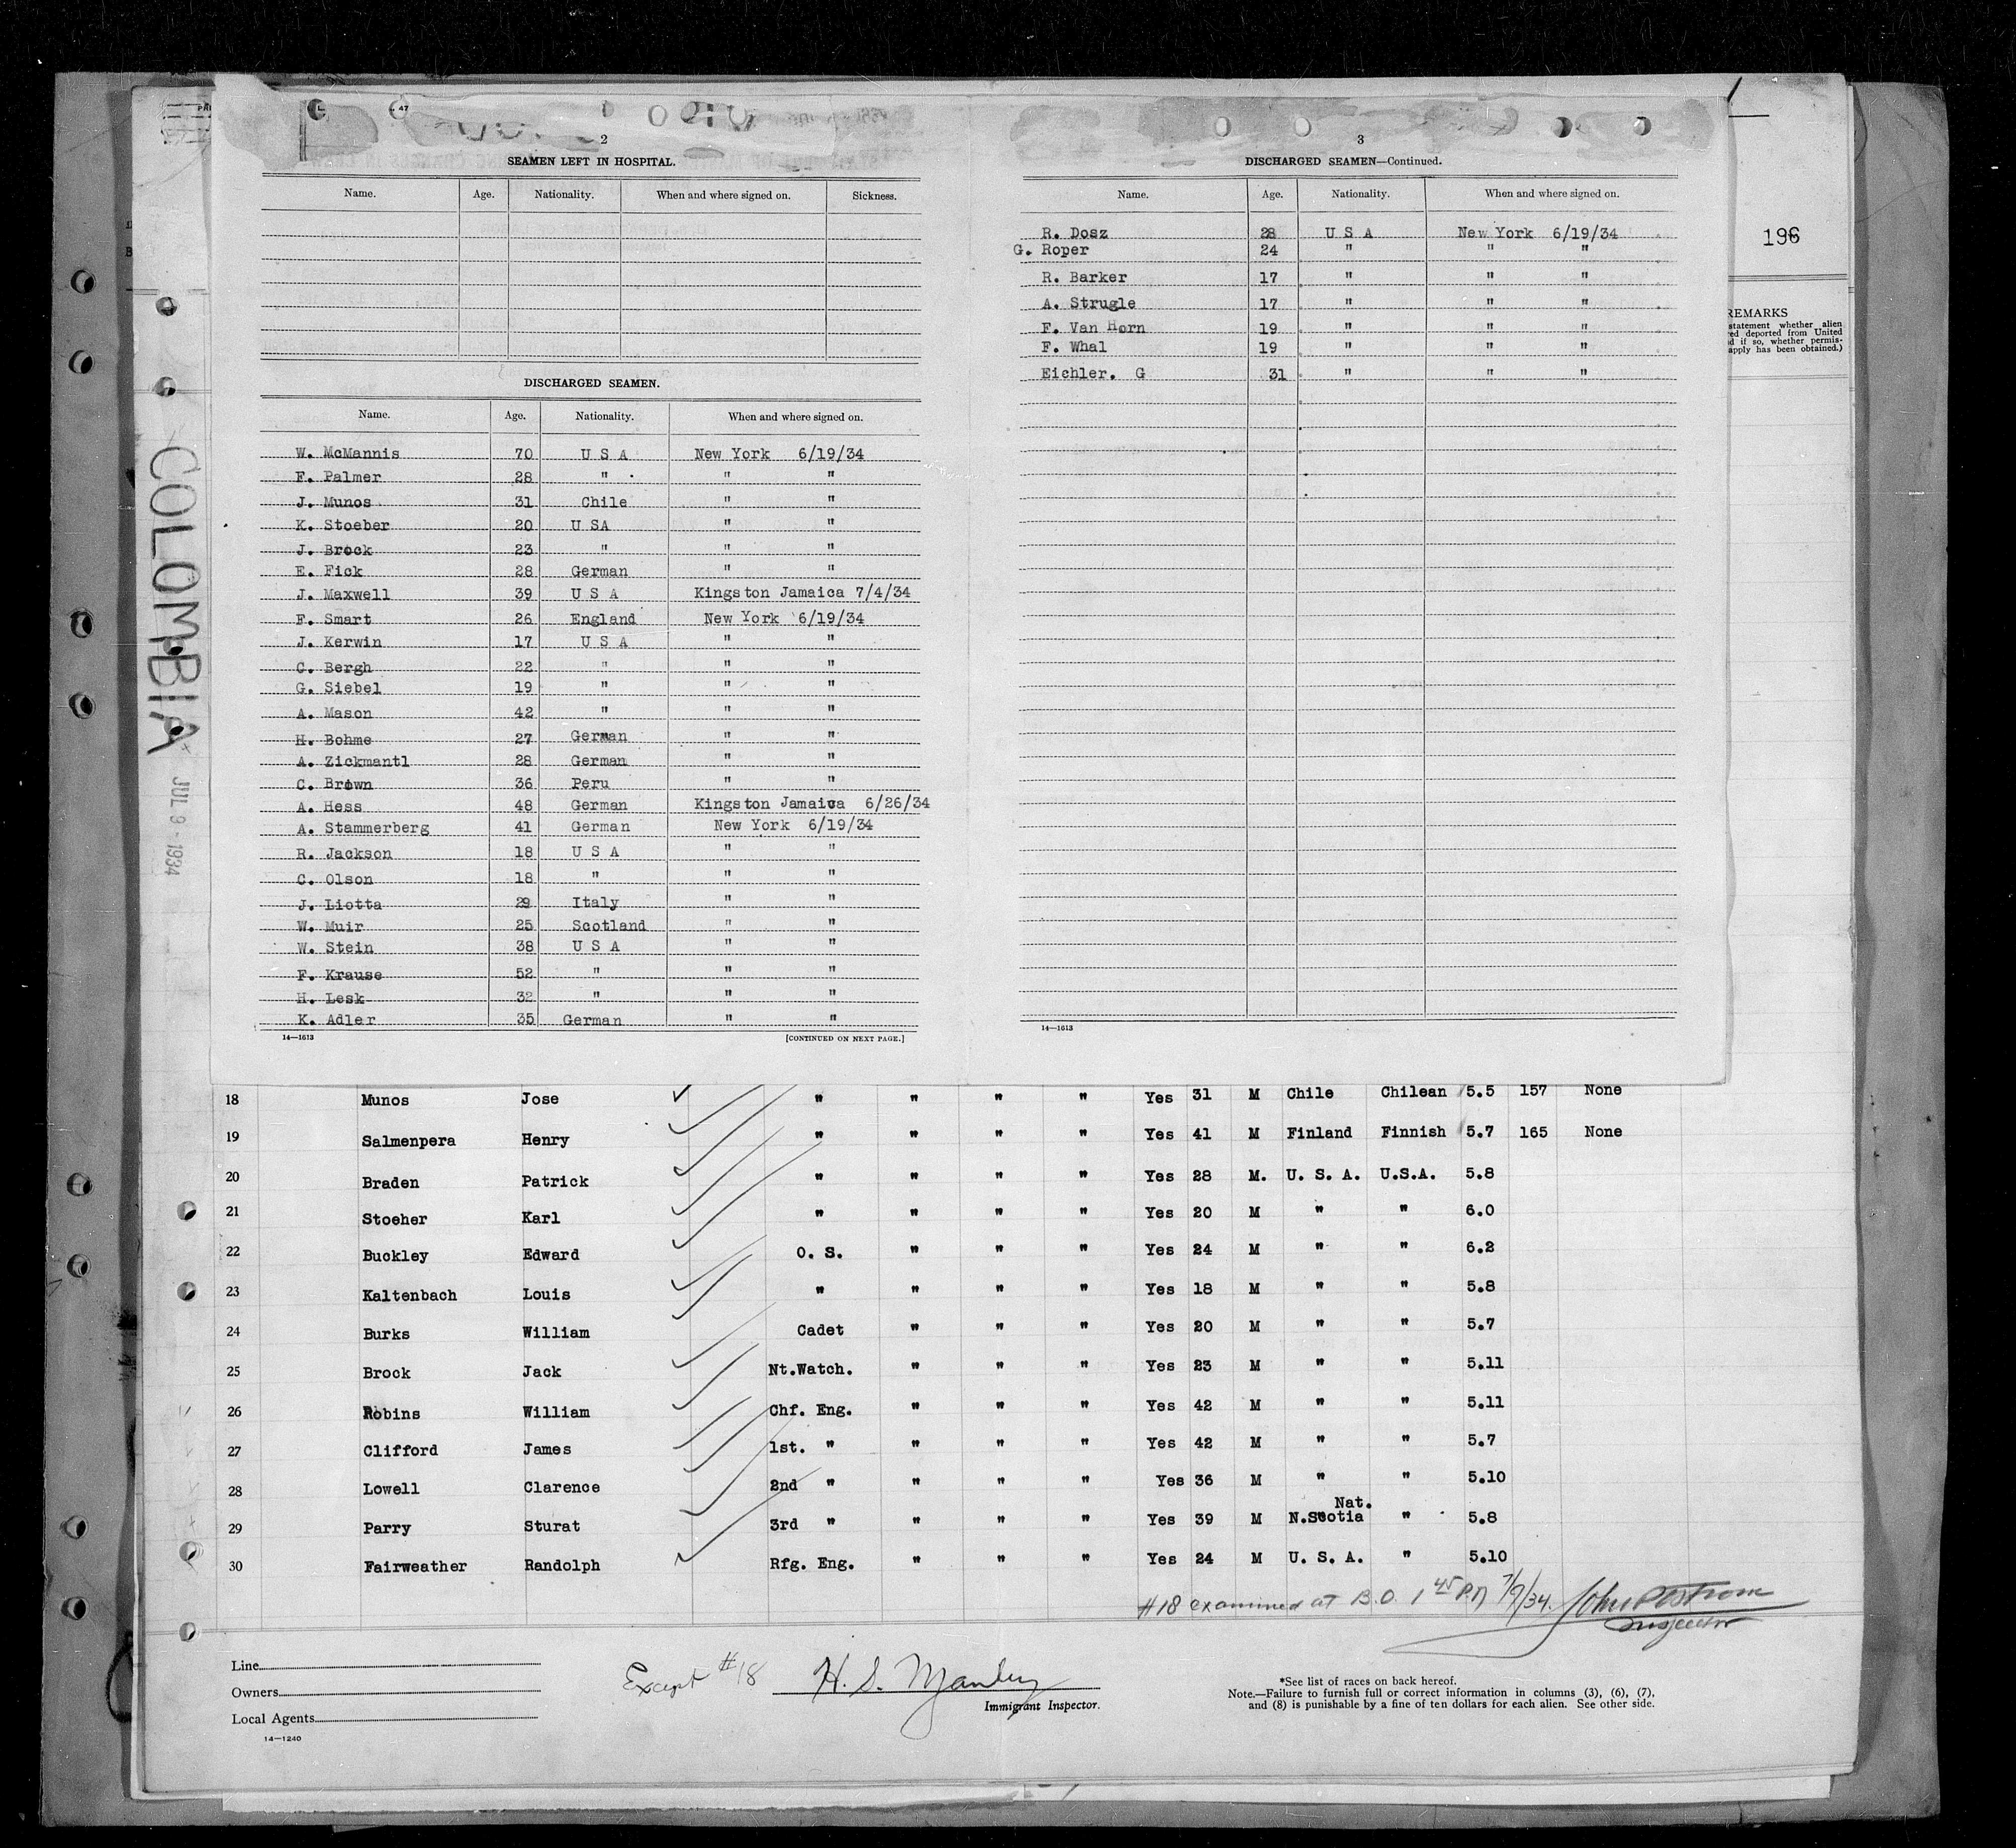 2
SEAMEN LEFT IN HOSPITAL.
Name. Age. Nationality. When and where signed on. Sickness.
DISCHARGED SEAMEN.
Name. Age. Nationality. When and where signed on.
W. McMannis 70 U S A New York 6/19/34
F. Palmer 28 " " "
J. Munos 31 Chile " "
K. Stoeber 20 U SA " "
J. Brock 23 " " "
E. Fick 28 German " "
J. Maxwell 39 U S A Kingston Jamaica 7/4/34
F. Smart 26 England New York 6/19/34
J. Kerwin 17 U S A " "
C. Bergh 22 " " "
G. Siebel 19 " " "
A. Mason 42 " " "
H. Bohme 27 German " "
A. Zickmantl 28 German " "
C. Brown 36 Peru " "
A. Hess 48 German Kingston Jamaica 6/26/34
A. Stammerberg 41 German New York 6/19/34
R. Jackson 18 U S A " "
C. Olson 18 " " "
J. Liotta 29 Italy " "
W. Muir 25 Scotland " "
W. Stein 38 U S A " "
F. Krause 52 " " "
H. Lesk 32 " " "
K. Adler 35 German " "
14—1613 [CONTINUED ON NEXT PAGE.]
3
DISCHARGED SEAMEN—Continued.
Name. Age. Nationality. When and where signed on.
R. Dosz 28 U S A New York 6/19/34
G. Roper 24 " " "
R. Barker 17 " " "
A. Strugle 17 " " "
F. Van Horn 19 " " "
F. Whal 19 " " "
Eichler. G 31 " " "
14—1613
196
REMARKS
statement whether alien
deported from United
if so, whether permis-
apply has been obtained.)
COLOMBIA
JUL 9 - 1934
18 Munos Jose " " " " Yes 31 M Chile Chilean 5.5 157 None
19 Salmenpera Henry " " " " Yes 41 M Finland Finnish 5.7 165 None
20 Braden Patrick " " " " Yes 28 M. U. S. A. U.S.A. 5.8
21 Stoeher Karl " " " " Yes 20 M " " 6.0
22 Buckley Edward O. S. " " " Yes 24 M " " 6.2
23 Kaltenbach Louis " " " " Yes 18 M " " 5.8
24 Burks William Cadet " " " Yes 20 M " " 5.7
25 Brock Jack Nt.Watch. " " " Yes 23 M " " 5.11
26 Robins William Chf. Eng. " " " Yes 42 M " " 5.11
27 Clifford James 1st. " " " " Yes 42 M " " 5.7
28 Lowell Clarence 2nd " " " " Yes 36 M " " 5.10
29 Parry Sturat 3rd " " " " Yes 39 M Nat. N.Scotia " 5.8
30 Fairweather Randolph Rfg. Eng. " " " Yes 24 M U. S. A. " 5.10
#18 examined at B.O. 1 45 P.M 7/9/34. John P Ostrom
Inspector
Line
Owners
Local Agents
14—1240
Except #18 H. S. Manley
Immigrant Inspector.
*See list of races on back hereof.
Note.—Failure to furnish full or correct information in columns (3), (6), (7),
and (8) is punishable by a fine of ten dollars for each alien. See other side.